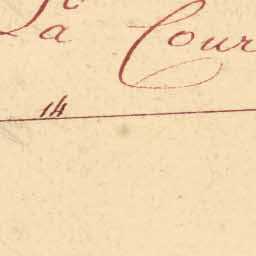 La Cour
14